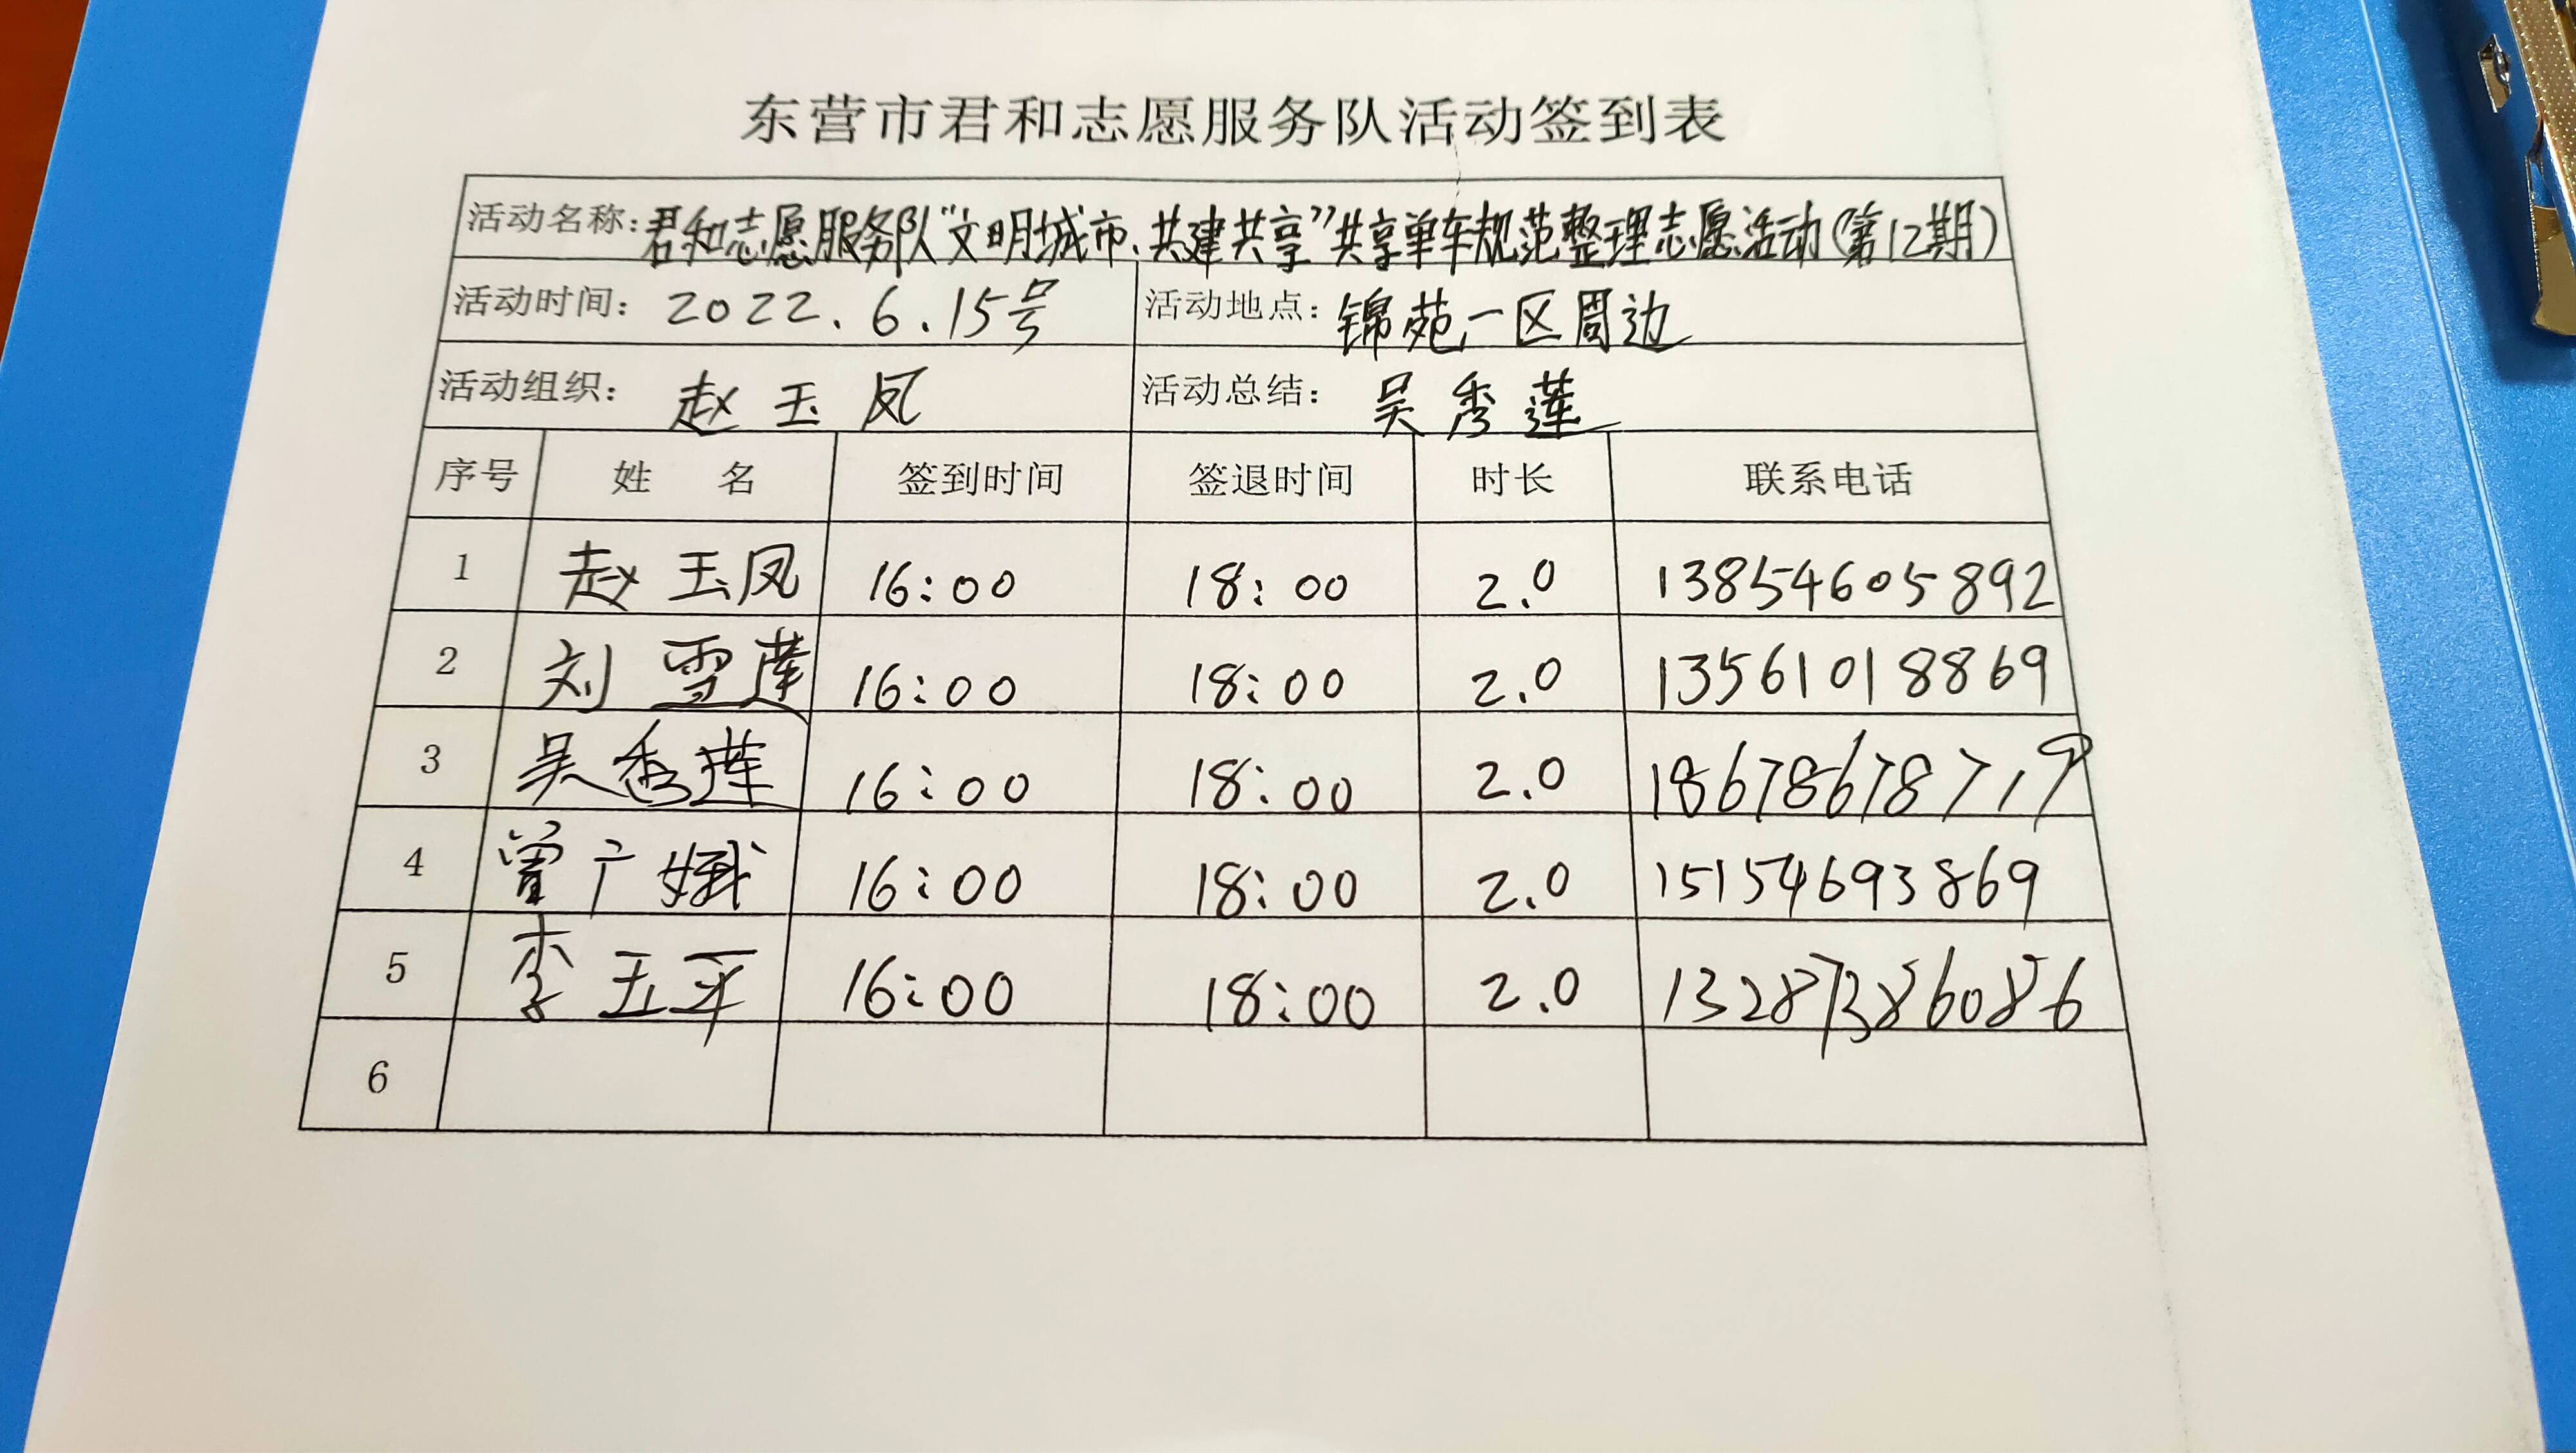 东营市君和志愿服务队活动签到表
活动名称：君和志愿服务队“文明城市、共建共享”共享单车规范整理志愿活动（第12期）
活动时间：2022.6.15号 活动地点：锦苑一区周边
活动组织：赵玉凤 活动总结：吴秀莲
序号 姓名 签到时间 签退时间 时长 联系电话
1 赵玉凤 16:00 18:00 2.0 13854605892
2 刘雪莲 16:00 18:00 2.0 13561018869
3 吴秀莲 16:00 18:00 2.0 18678678719
4 曾广娥 16:00 18:00 2.0 15154693869
5 李玉平 16:00 18:00 2.0 13287386086
6